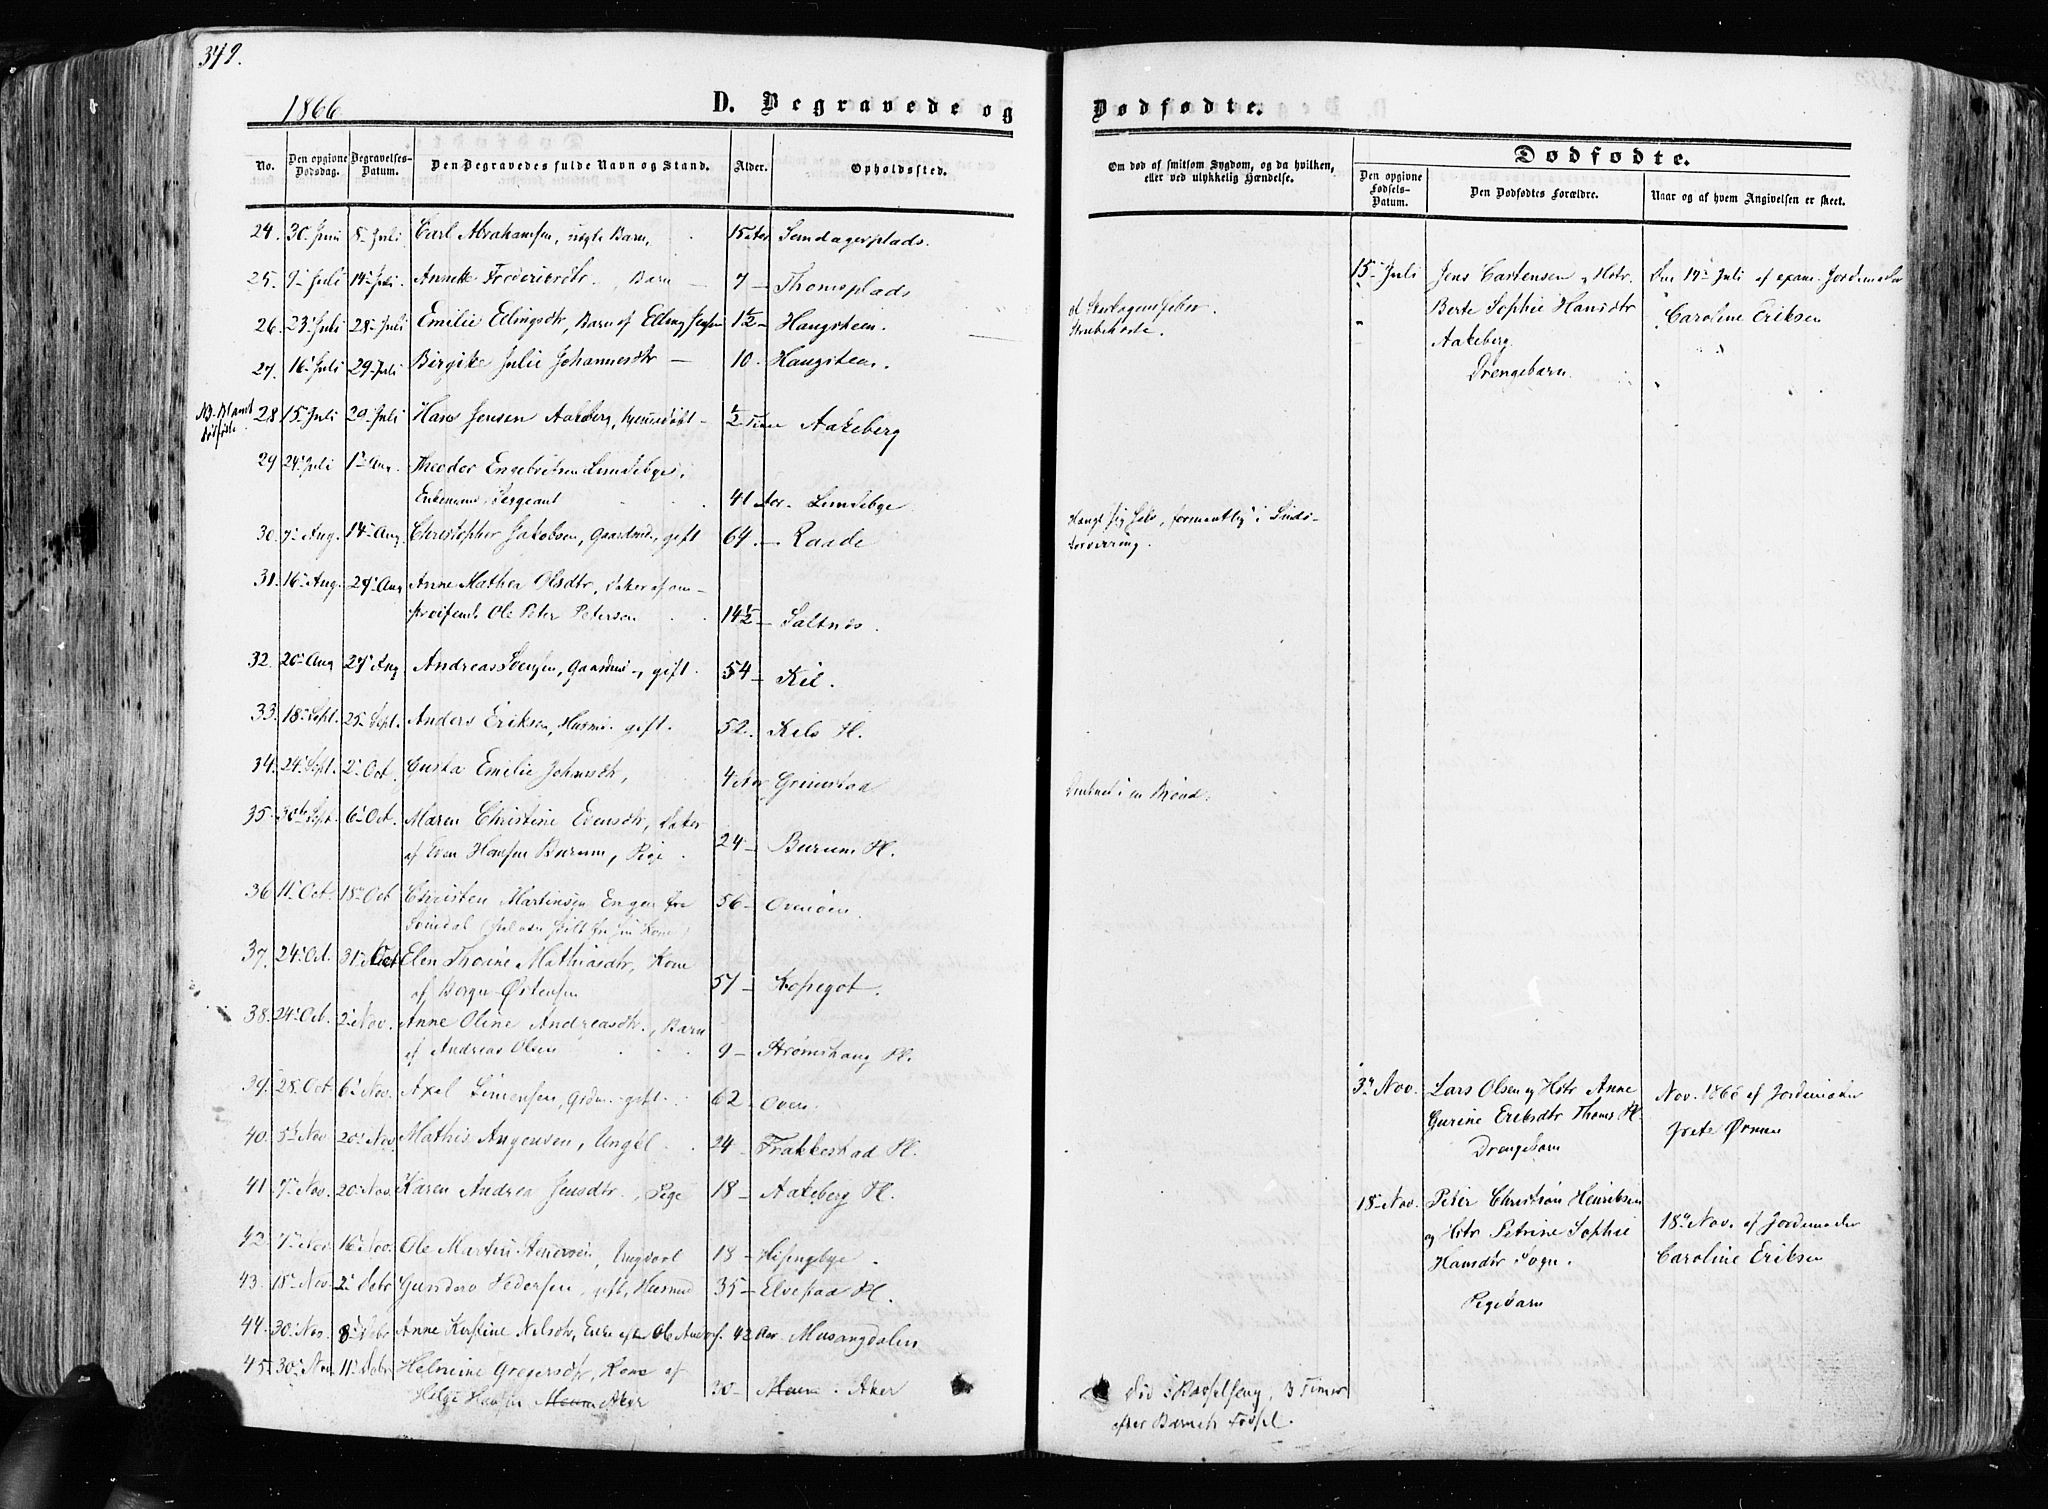 349.
1866
D. Begravede og
Dødfødte.
No. Den opgivne Dødsdag. Begravelses-Datum. Den Begravedes fulde Navn og Stand. Alder. Opholdssted.
Om død af smitsom Sygdom, og da hvilken, eller ved ulykkelig Hændelse.
Dødfødte.
Den opgivne Fødsels-Datum. Den Dødfødtes Forældre. Naar og af hvem Angivelsen er skeet.
24. 30 Juni 8 Juli Carl Abrahamsen, Barn,
25. 9 Juli 14 Juli Annette Frederiksdtr. Barn — 7 — Thomsplads
26. 23 Juli 28 Juli Emilie Ellingsdtr, Barn af Elling 1½ — Haugsteen.
27. 16 Juli 29 Juli Johannesdtr — 10. Haugsteen.
NB. Bland dødfødte 28 15 Juli 20 Juli Hans Jensen Aakeberg, hjemmedøbt — ½ Time Aakeberg
29 24 Juli 1 Aug. Theodor Engebretsen
Enkemand, Sergeant 41 Aar
30. 7 Aug. 14 Aug. Christopher Jakobsen, Gaardmd, gift 64 — Raade
31. 16 Aug. 24 Aug Anne Mathea Olsdtr, Datter af om-
streifende Ole Peter Petersen 14½ — Saltnes.
32. 20 Aug 27 Aug Andreas Gaardmd, gift. 54 — Kil.
33. 18 Sept. 25 Sept. Anders Eriksen, Husmd. gift. 52. Kils Pl.
34. 24 Sept. 2 Oct. Gusta Emilie Johansdtr, 4 Aar Grimstad
35. 30 Sept. 6 Oct. Maren Christine Evensdtr, Datter
af Even Hansen Burum, Pige. 24 — Burum Pl.
36 11 Oct. 18 Oct Christen Martinsen Engen fra
56 —
37. 24 Oct. 31 Oct Elen Thorine Mathiasdtr, Kone
af Borger Østensen 57 — Kopegot.
38. 24 Oct. 2 Nov. Anne Oline Andreasdtr., Barn
af Andreas Olsen 9 — Strømshaug Pl.
39. 28. Oct 6 Nov. Axel Simensen, Gdmd. gift. 62. Oven.
40. 5 Nov 20 Nov. Mathis Ungkl. 24 — Frakkestad Pl.
41. 7 Nov. 20 Nov. Karen Andrea Jensdtr., Pige 18 — Aakeberg Pl.
42. 7 Nov 16 Nov. Ole Martin 18 —
43. 18 Nov 2 Debr gift, Husmd 35 — Elvestad Pl.
44. 30 Nov. 8 Debr Anne Kirstine Nilsdtr, Enke efter Ole 42 Aar.
45. 30 Nov 11 Debr Gregersdtr, Kone af
Helge Hansen Aker 30 — Aker
Strubehoste.
Hængt sig selv, formentlig i Sinds-
forvirring.
Druknet i en Brønd.
Død i Barselseng, 3 Timer
efter Barnets Fødsel.
15 Juli Jens Carstensen og Hstr. Den 17 Juli af exam. Jordemoder
Berte Sophie Hansdtr Caroline Eriksen
Aakeberg.
Drengebarn.
3 Nov. Lars Olsen og Hstr Anne Nov. 1866 af Jordemoder
Gurine Eriksdtr Thoms Pl.
Drengebarn
18 Nov. Peter Christian Henriksen
og Hstr Petrine Sophie 18 Nov. af Jordemoder
Hansdtr Sogn. Caroline Eriksen
Pigebarn